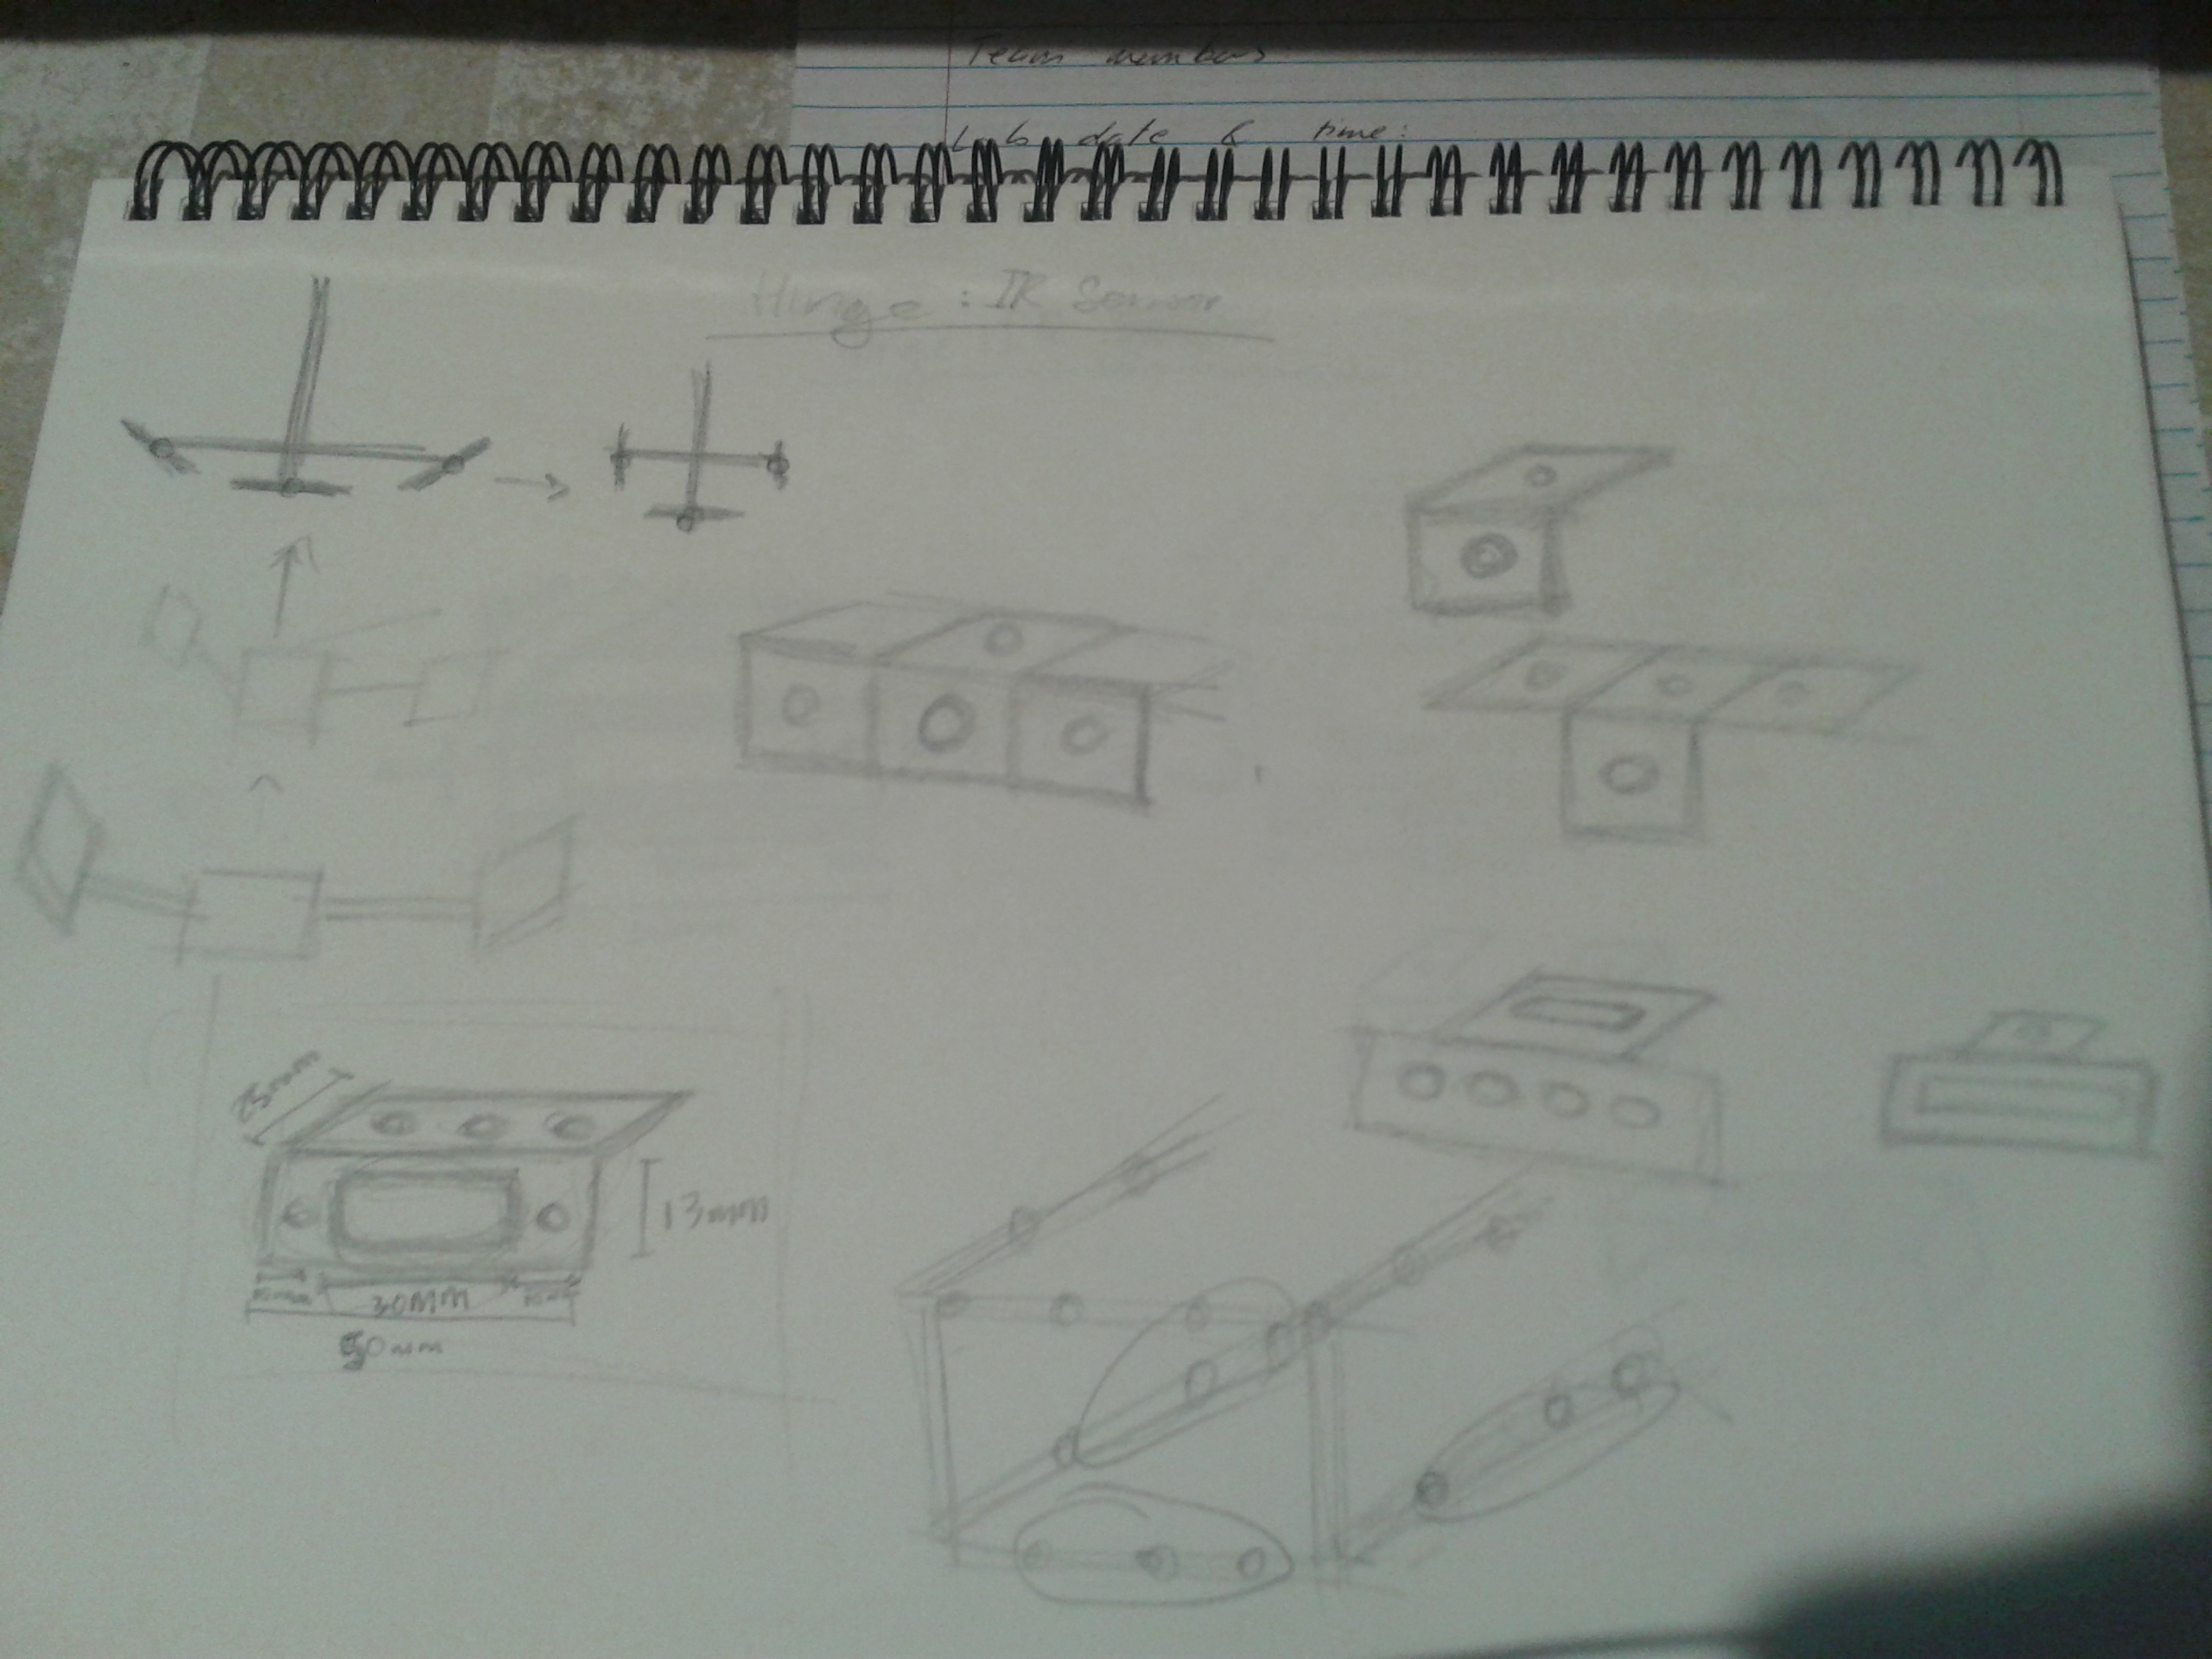 Team members
Lab date & time:
Hinge: IR Sensor
25mm
13mm
10mm 30mm 10mm
50mm